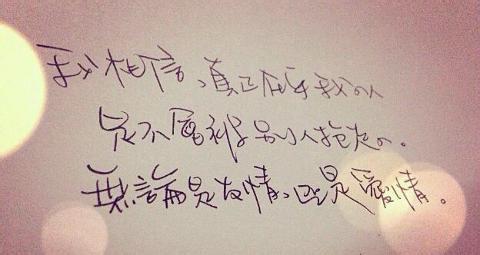 我相信、真正在乎我的人
是不會被別人搶走的。
無論是友情、還是愛情。